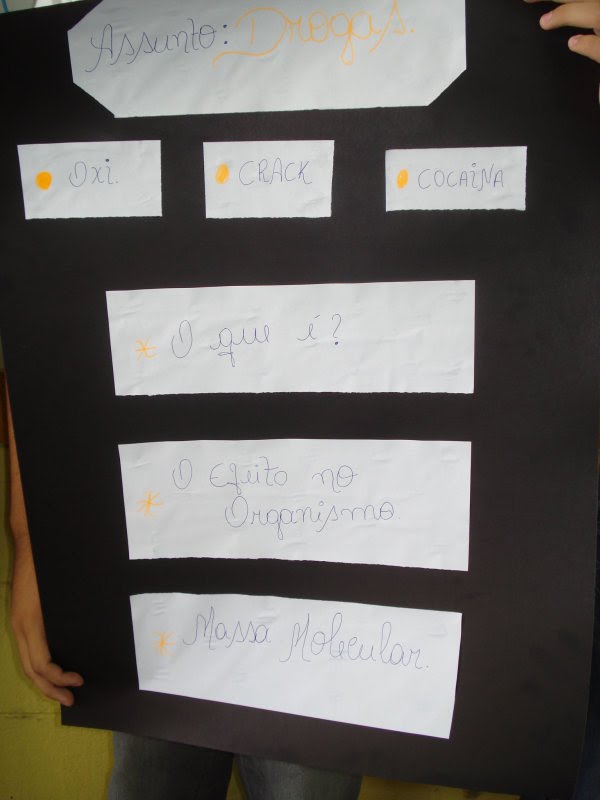 Assunto: Drogas.
Oxi.
CRACK
COCAÍNA
O que é?
O Efeito no
Organismo.
Massa Molecular.